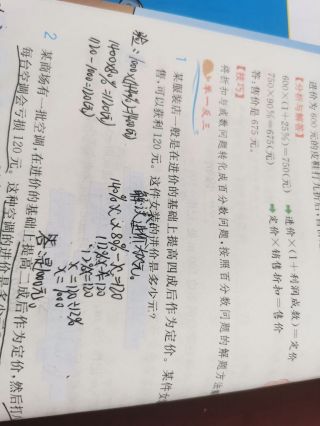 进价为600元的皮鞋打九折后,售
【分析与解答】
600×(1+25%)=750(元) ➡ 进价×(1+利润成数)=定价
750×90%=675(元) ➡ 定价×销售折扣=售价
答:售价是675元。
【技巧】
将折扣与成数问题转化成百分数问题,按照百分数问题的解题方法
举一反三
1 某服装店一般是在进价的基础上提高四成后作为定价。某件女
售,可以获利120元。这件女装的进价是多少元?
解:设进价为x元。
140%x×80%-x=120
112%x-x=120
12%x=120
x=120÷12%
x=1000
验:1000×140%=1400(元)
1400×80%=1120(元)
1120-1000=120(元)
2 某商场有一批空调,在进价的基础上提高二成后作为定价,然后打八
每台空调会亏损120元。这种空调的进价是多少元